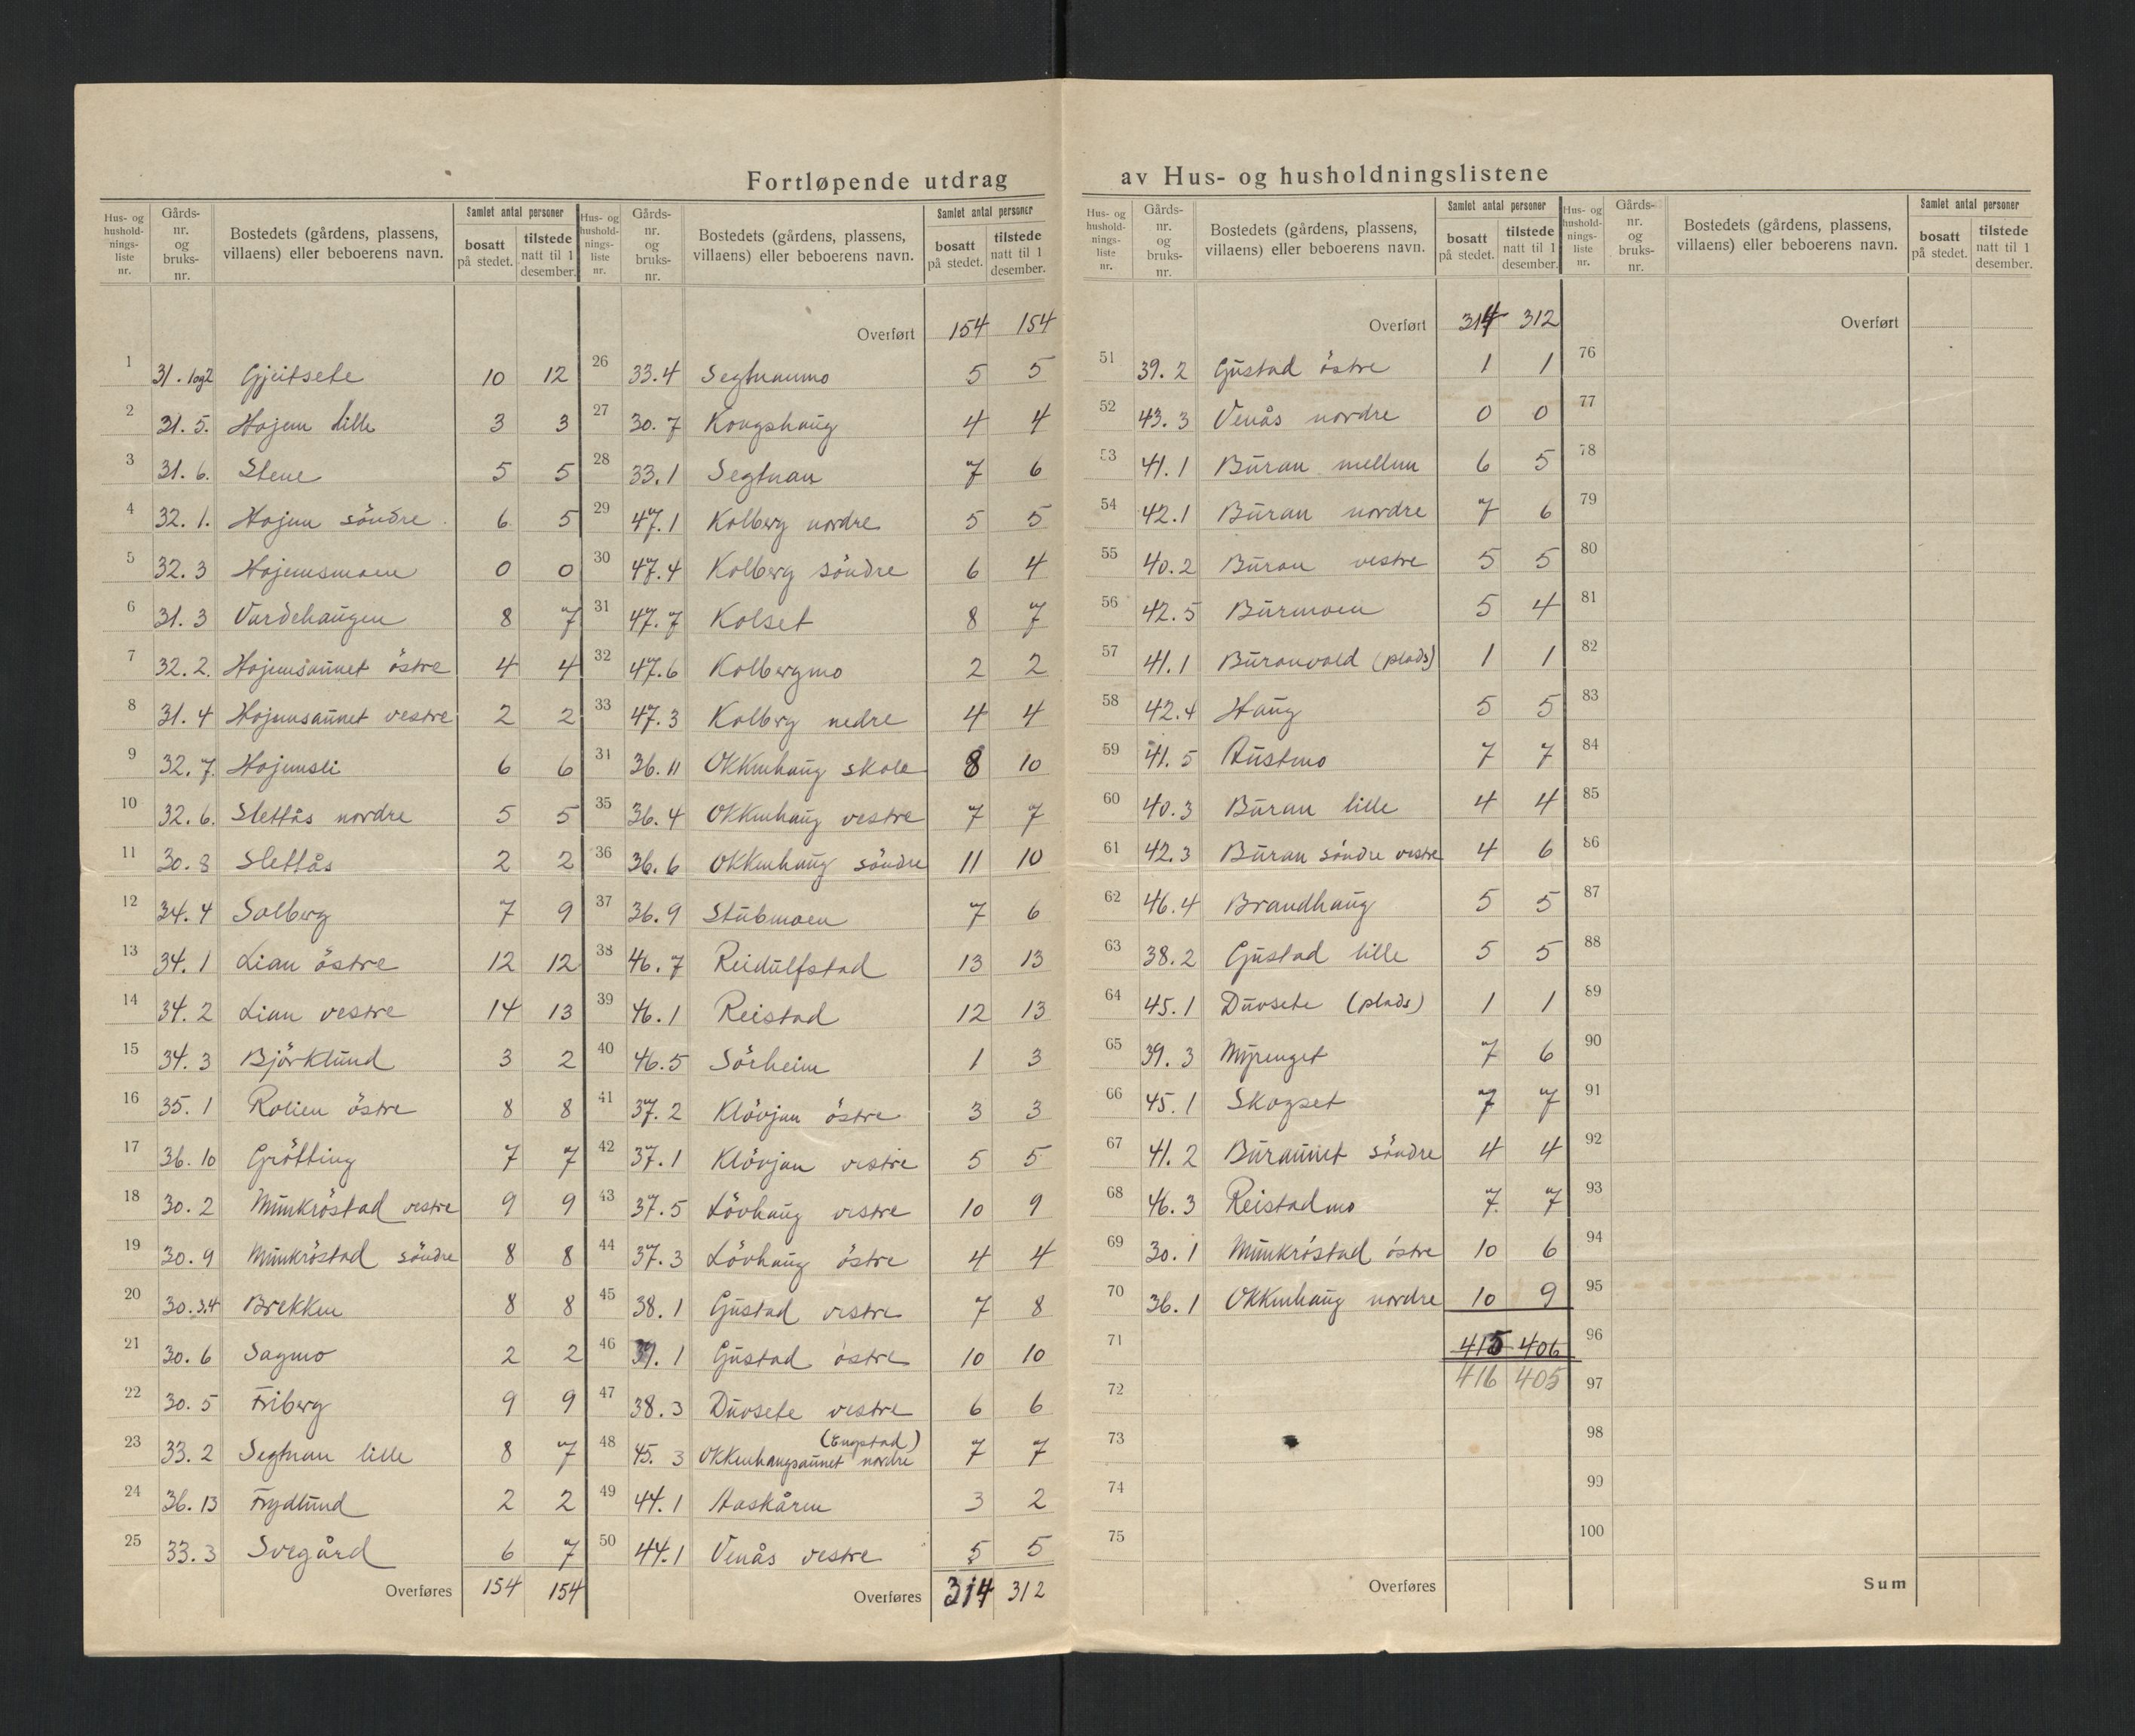 Fortløpende utdrag av Hus- og husholdningslistene
Hus- og husholdnings-liste nr. | Gårds-nr. og bruks-nr. | Bostedets (gårdens, plassens, villaens) eller beboerens navn. | Samlet antal personer bosatt på stedet. | tilstede natt til 1 desember.
1 31.1og2 Gjeitsete 10 12
2 31.5. Hojem lille 3 3
3 31.6. Stene 5 5
4 32.1. Hojem söndre 6 5
5 32.3 Hojemsmoen 0 0
6 31.3 Vardehaugen 8 7
7 32.2. Hojemsaunet östre 4 4
8 31.4 Hojemsaunet vestre 2 2
9 32.7. Hojemsli 6 6
10 32.6. Slettås nordre 5 5
11 30.8 Slettås 2 2
12 34.4 Solberg 7 9
13 34.1 Lian östre 12 12
14 34.2 Lian vestre 14 13
15 34.3 Björklund 3 2
16 35.1 Rolien östre 8 8
17 36.10 Grötting 7 7
18 30.2 Munkröstad vestre 9 9
19 30.9 Munkröstad söndre 8 8
20 30.3.4 Brekken 8 8
21 30.6 Sagmo 2 2
22 30.5 Friberg 9 9
23 33.2 Segtnan lille 8 7
24 36.13 Frydlund 2 2
25 33.3 Svegård 6 7
Overføres 154 154
Hus- og husholdnings-liste nr. | Gårds-nr. og bruks-nr. | Bostedets (gårdens, plassens, villaens) eller beboerens navn. | Samlet antal personer bosatt på stedet. | tilstede natt til 1 desember.
Overført 154 154
26 33.4 Segtnanmo 5 5
27 30.7 Kongshaug 4 4
28 33.1 Segtnan 7 6
29 47.1 Kolberg nordre 5 5
30 47.4 Kolberg söndre 6 4
31 47.7 Kolset 8 7
32 47.6 Kolbergmo 2 2
33 47.3 Kolberg nedre 4 4
34 36.11 Okkenhaug skole 8 10
35 36.4 Okkenhaug vestre 7 7
36 36.6 Okkenhaug söndre 11 10
37 36.9 Stubmoen 7 6
38 46.7 Reidulfstad 13 13
39 46.1 Reistad 12 13
40 46.5 Sörheim 1 3
41 37.2 Klövjan östre 3 3
42 37.1 Klövjan vestre 5 5
43 37.5 Lövhaug vestre 10 9
44 37.3 Lövhaug östre 4 4
45 38.1 Gustad vestre 7 8
46 39.1 Gustad östre 10 10
47 38.3 Duvsete vestre 6 6
48 45.3 Okkenhaugsaunet nordre (Engstad) 7 7
49 44.1 Aaskåren 3 2
50 44.1 Venås vestre 5 5
Overføres 314 312
Hus- og husholdnings-liste nr. | Gårds-nr. og bruks-nr. | Bostedets (gårdens, plassens, villaens) eller beboerens navn. | Samlet antal personer bosatt på stedet. | tilstede natt til 1 desember.
Overført 314 312
51 39.2 Gustad östre 1 1
52 43.3 Venås nordre 0 0
53 41.1 Buran mellem 6 5
54 42.1 Buran nordre 7 6
55 40.2 Buran vestre 5 5
56 42.5 Burmoen 5 4
57 41.1 Buranvald (plads) 1 1
58 42.4 Haug 5 5
59 41.5 Austmo 7 7
60 40.3 Buran lille 4 4
61 42.3 Buran söndre vestre 4 6
62 46.4 Brandhaug 5 5
63 38.2 Gustad lille 5 5
64 45.1 Duvsete (plads) 1 1
65 39.3 Myrenget 7 6
66 45.1 Skogset 7 7
67 41.2 Buraunet söndre 4 4
68 46.3 Reistadmo 7. 7
69 30.1 Munkröstad östre 10 6
70 36.1 Okkenhaug nordre 10 9
71 415 406
72 416 405
73
74
75
Overføres
Hus- og husholdnings-liste nr. | Gårds-nr. og bruks-nr. | Bostedets (gårdens, plassens, villaens) eller beboerens navn. | Samlet antal personer bosatt på stedet. | tilstede natt til 1 desember.
Overført
76
77
78
79
80
81
82
83
84
85
86
87
88
89
90
91
92
93
94
95
96
97
98
99
100
Sum